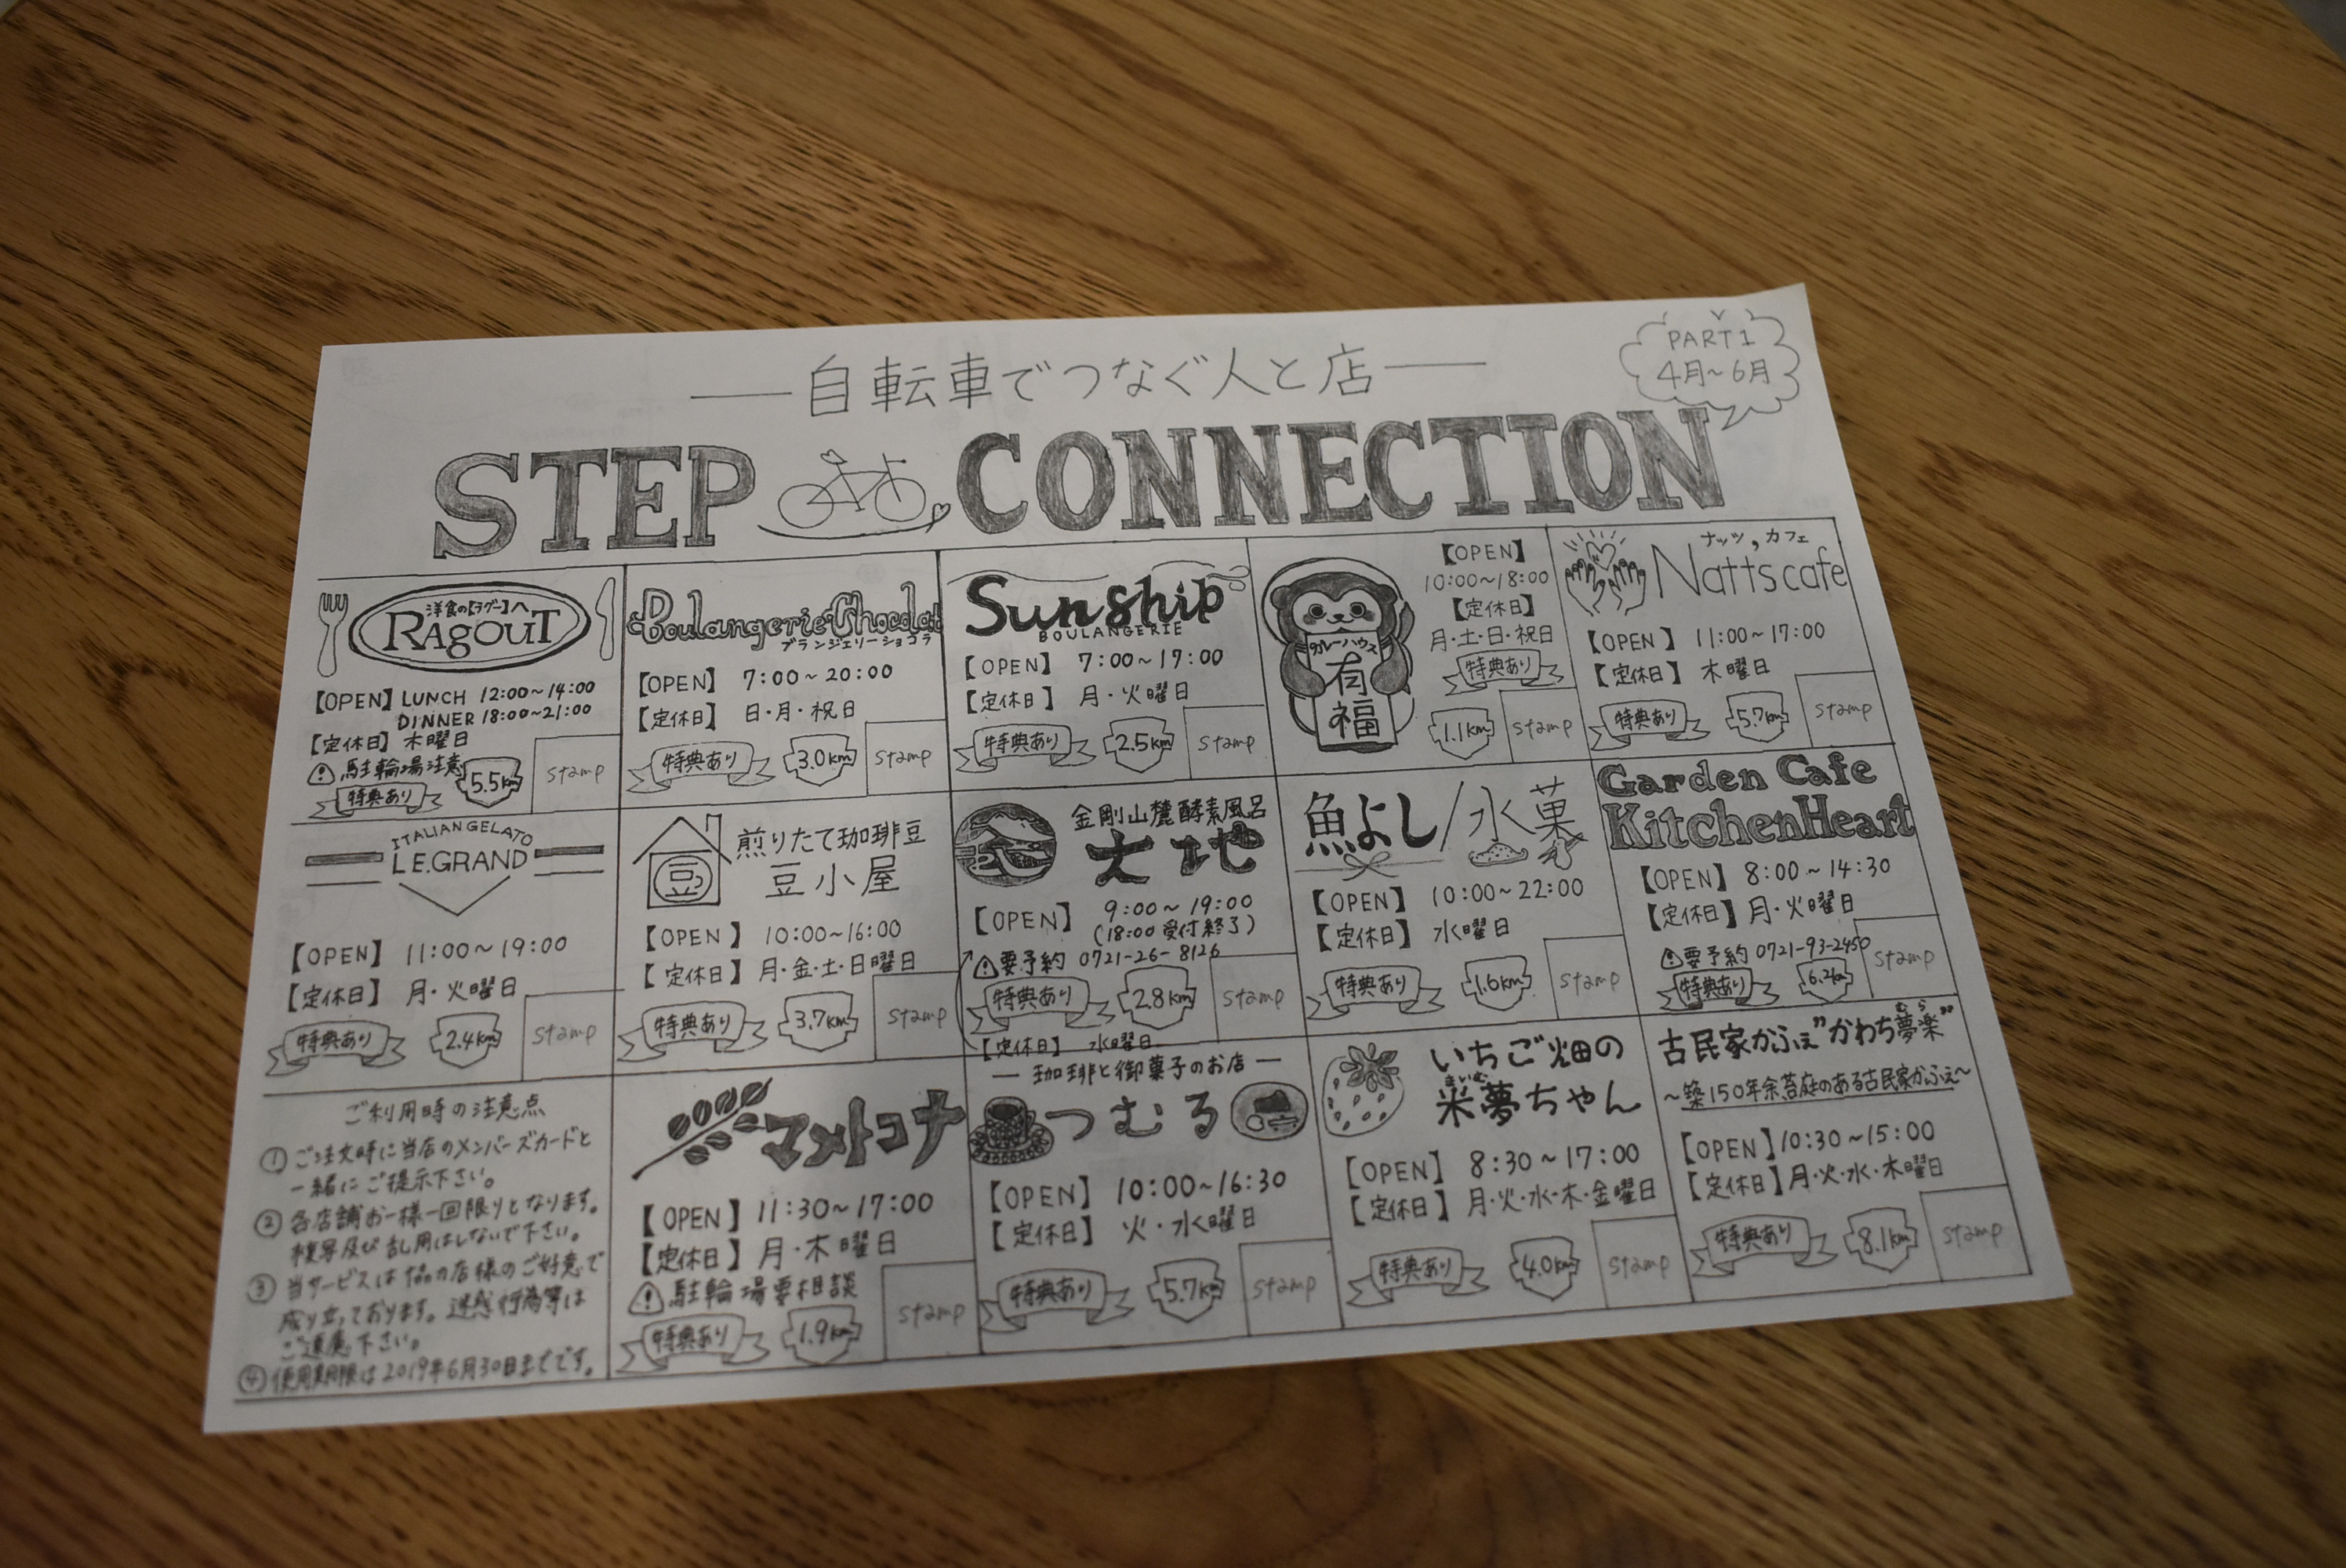 自転車でつなぐ人と店
PART1
4月~6月
STEP CONNECTION
洋食の【ラグー】へ
RAGOUT
【OPEN】LUNCH 12:00~14:00
DINNER 18:00~21:00
【定休日】木曜日
駐輪場注意
特典あり
5.5km
stamp
Boulangerie Chocolat
ブランジェリーショコラ
【OPEN】 7:00~20:00
【定休日】 日・月・祝日
特典あり
3.0km
stamp
Sunship
BOULANGERIE
【OPEN】 7:00~17:00
【定休日】 月・火曜日
特典あり
2.5km
stamp
カレーハウス
有福
【OPEN】
10:00~18:00
【定休日】
月・土・日・祝日
特典あり
1.1km
stamp
ナッツ,カフェ
Natts cafe
【OPEN】 11:00~17:00
【定休日】 木曜日
特典あり
5.7km
stamp
ITALIAN GELATO
LE.GRAND
【OPEN】 11:00~19:00
【定休日】 月・火曜日
特典あり
2.4km
stamp
豆
煎りたて珈琲豆
豆小屋
【OPEN】 10:00~16:00
【定休日】月・金・土・日曜日
特典あり
3.7km
stamp
金剛山麓酵素風呂
大地
【OPEN】 9:00~19:00
(18:00 受付終了)
要予約 0721-26-8126
特典あり
2.8km
stamp
【定休日】 水曜日
魚よし/氷菓
【OPEN】 10:00~22:00
【定休日】 水曜日
特典あり
1.6km
stamp
Garden Cafe
KitchenHeart
【OPEN】 8:00~14:30
【定休日】月・火曜日
要予約 0721-93-2450
特典あり
6.2km
stamp
ご利用時の注意点
① ご注文時に当店のメンバーズカードと
一緒にご提示下さい。
② 各店舗お一様一回限りとなります。
複写及び乱用はしないで下さい。
③ 当サービスは他の店様のご好意で
成り立っております。迷惑行為等は
ご遠慮下さい。
④ 使用期限は2019年6月30日までです。
マメトコナ
【OPEN】11:30~17:00
【定休日】月・木曜日
駐輪場要相談
特典あり
1.9km
stamp
珈琲と御菓子のお店
つむる
【OPEN】 10:00~16:30
【定休日】 火・水曜日
特典あり
5.7km
stamp
いちご畑の
まいむ
米夢ちゃん
【OPEN】 8:30~17:00
【定休日】月・火・水・木・金曜日
特典あり
4.0km
stamp
むら
古民家かふぇ"かわち夢楽"
~築150年余苔庭のある古民家かふぇ~
【OPEN】10:30~15:00
【定休日】月・火・水・木曜日
特典あり
8.1km
stamp